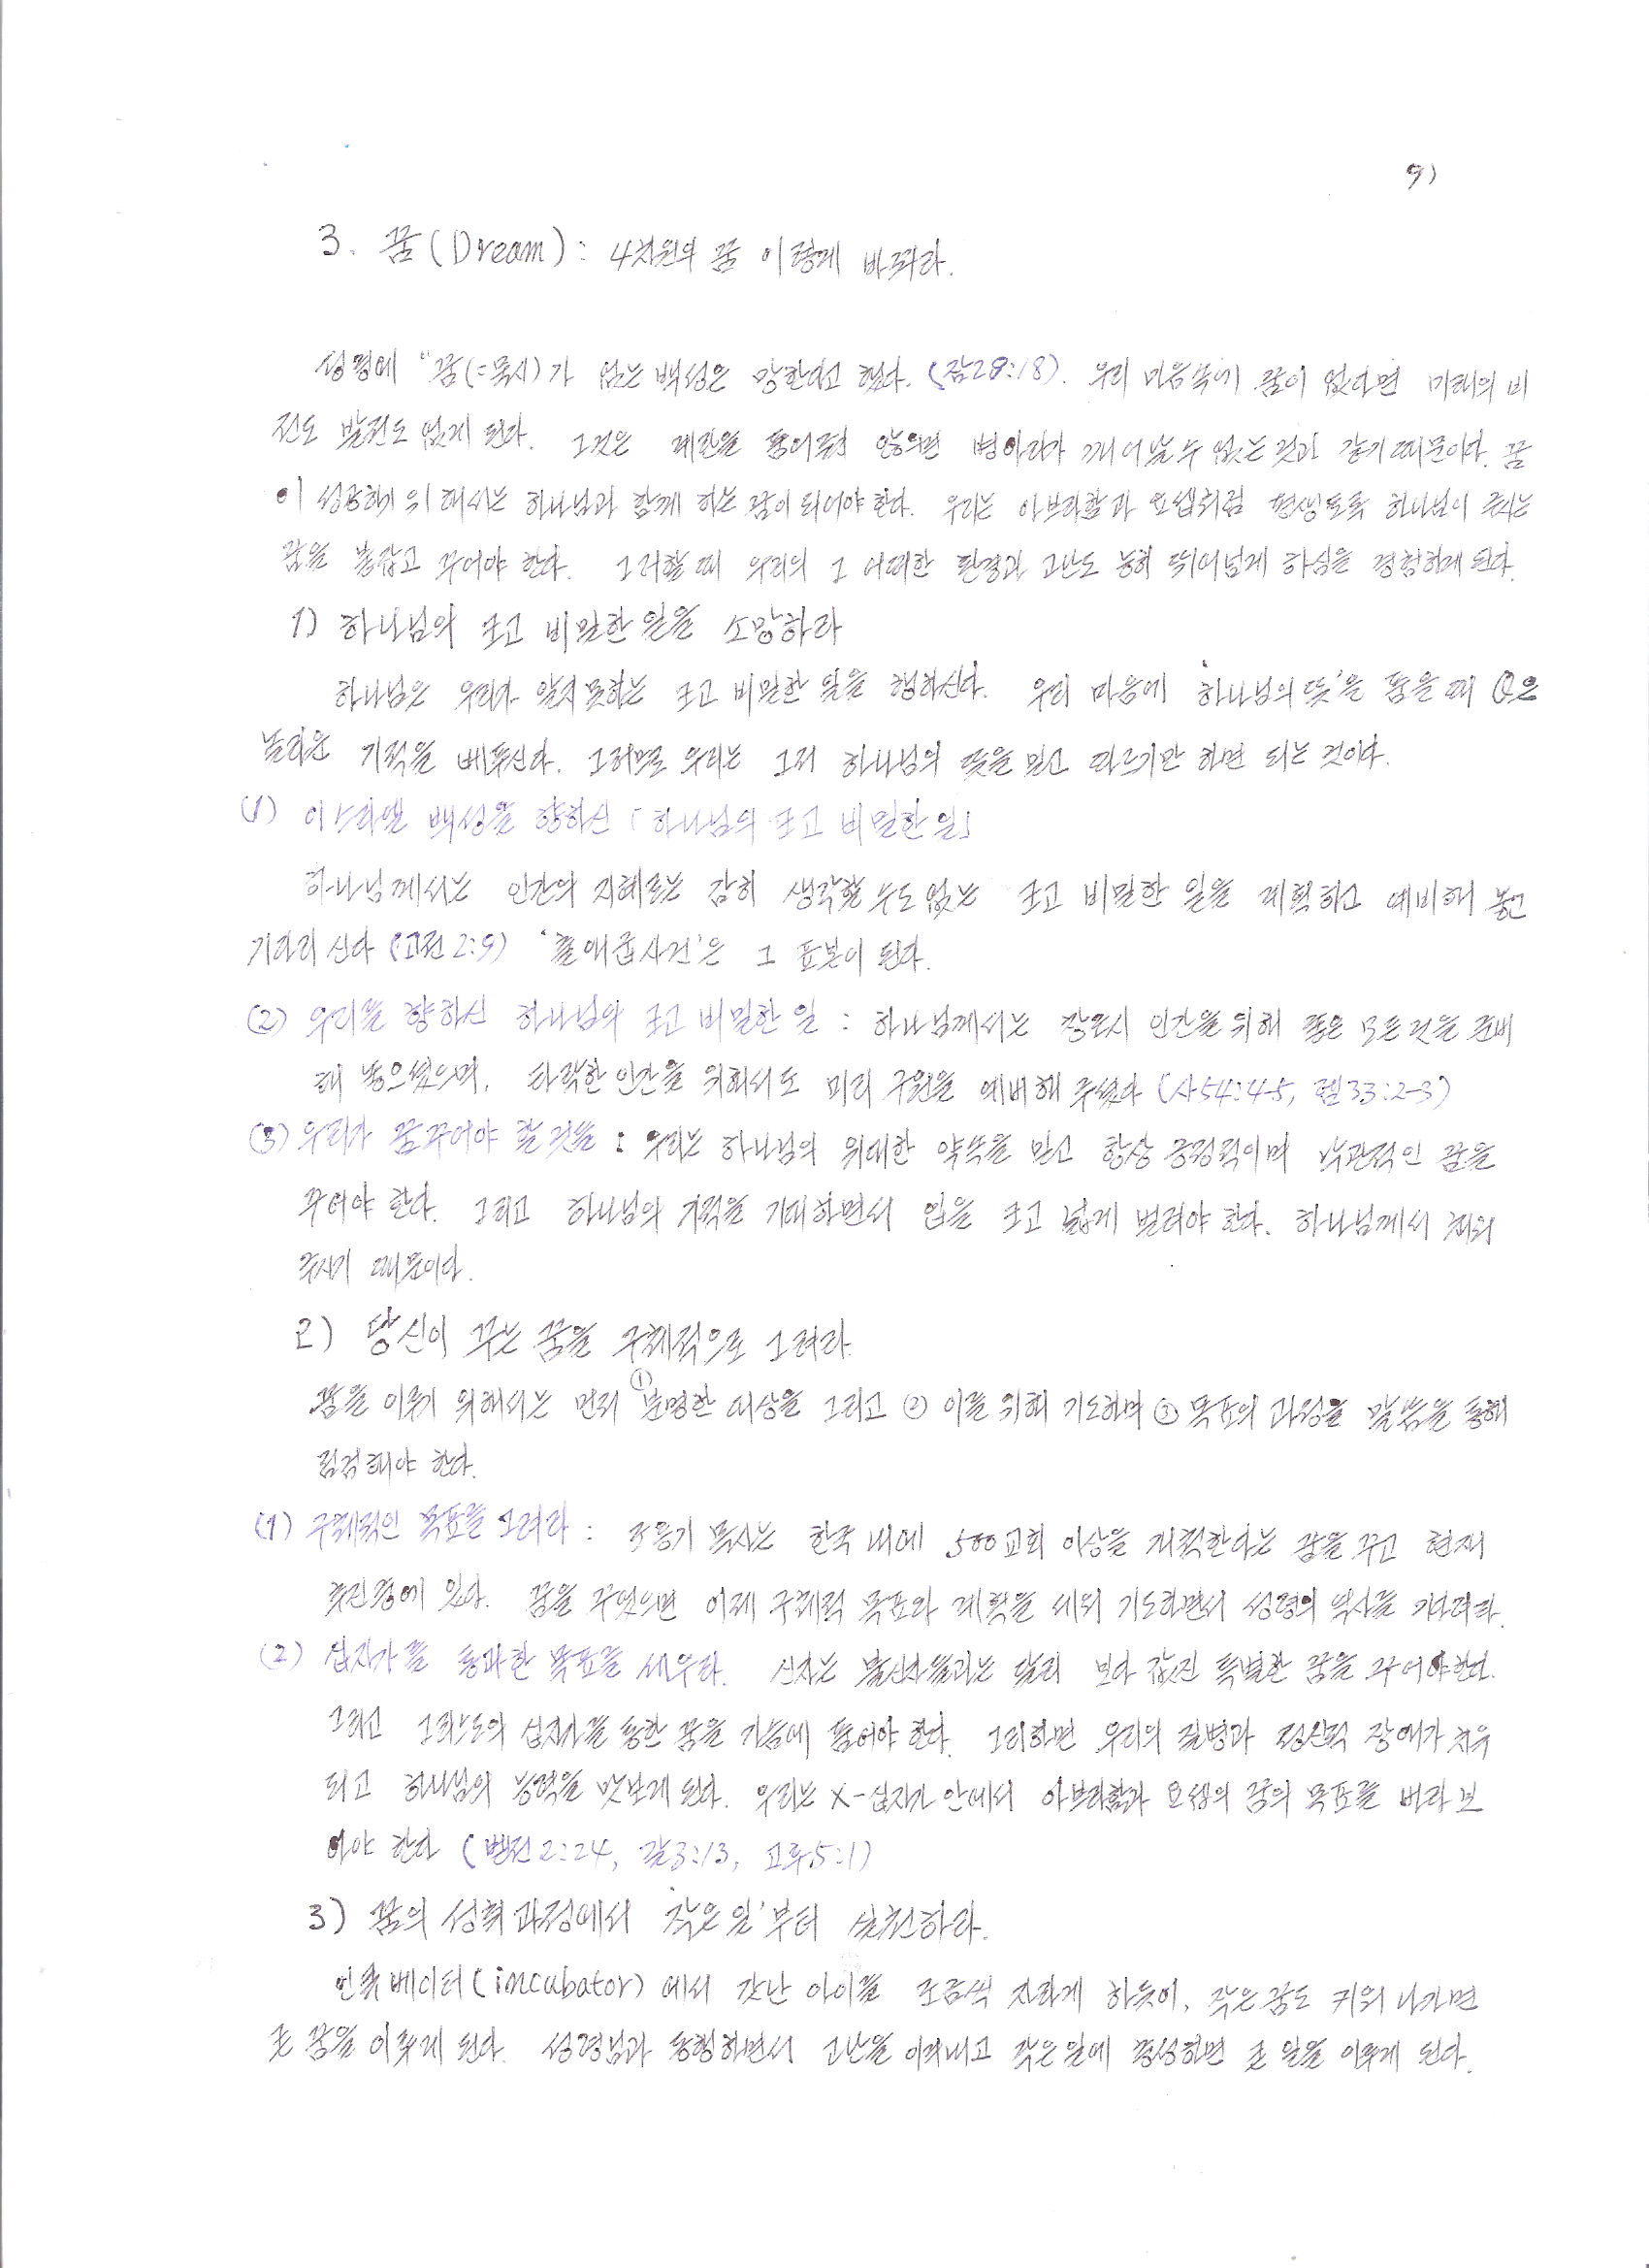 9)
3. 꿈(Dream): 4차원의 꿈 이렇게 바꿔라.
성경에 "꿈(=묵시)가 없는 백성은 망한다고 했다. (잠29:18). 우리 마음속에 꿈이 없다면 미래의 비
전도 발전도 없게 된다. 그것은 계란을 품어주지 않으면 병아리가 깨어날 수 없는 것과 같기 때문이다. 꿈
이 성장하기 위해서는 하나님과 함께 하는 꿈이 되어야 한다. 우리는 아브라함과 요셉처럼 평생토록 하나님이 주시는
꿈을 붙잡고 꾸어야 한다. 그러할 때 우리의 그 어떠한 환경과 고난도 능히 뛰어넘게 하심을 경험하게 된다.
1) 하나님의 크고 비밀한 일을 소망하라
하나님은 우리가 알지 못하는 크고 비밀한 일을 행하신다. 우리 마음에 '하나님의 뜻'을 품을 때 은
놀라운 기적을 베푸신다. 그러므로 우리는 그저 하나님의 뜻을 믿고 따르기만 하면 되는 것이다.
(1) 이스라엘 백성을 향하신 「하나님의 크고 비밀한 일」
하나님께서는 인간의 지혜로는 감히 생각할 수도 없는 크고 비밀한 일을 계획하고 예비해 놓고
기다리신다 (고전2:9) '출애굽사건'은 그 표본이 된다.
(2) 우리를 향하신 하나님의 크고 비밀한 일 : 하나님께서는 창조시 인간을 위해 좋은 모든 것을 준비
해 놓으셨으며, 타락한 인간을 위해서도 미리 구원을 예비해 주셨다 (사54:4-5, 렘33:2-3)
(3) 우리가 꿈꾸어야 할 것들 : 우리는 하나님의 위대한 약속을 믿고 항상 긍정적이며 낙관적인 꿈을
꾸어야 한다. 그리고 하나님의 기적을 기대하면서 입을 크고 넓게 벌려야 한다. 하나님께서 채워
주시기 때문이다.
2) 당신이 꾸는 꿈을 구체적으로 그려라.
꿈을 이루기 위해서는 먼저 ①분명한 대상을 그리고 ② 이를 위해 기도하며 ③ 목표의 과정을 말씀을 통해
점검해야 한다.
(1) 구체적인 목표를 그려라 : 조용기 목사는 한국 내에 500교회 이상을 개척한다는 꿈을 꾸고 현재
추진중에 있다. 꿈을 꾸었으면 이제 구체적 목표와 계획을 세워 기도하면서 성령의 역사를 기다려라.
(2) 십자가를 통과한 목표를 세우라. 신자는 불신자들과는 달리 보다 값진 특별한 꿈을 꾸어야 한다.
그리고 그리스도의 십자가를 통한 꿈을 가슴에 품어야 한다. 그리하면 우리의 질병과 정신적 장애가 치유
되고 하나님의 능력을 맛보게 된다. 우리는 X-십자가 안에서 아브라함과 요셉의 꿈의 목표를 바라보
아야 한다 (벧전2:24, 갈3:13, 고후5:1)
3) 꿈의 성취과정에서 '작은 일'부터 실천하라.
인큐베이터(incubator)에서 갓난 아이를 조금씩 자라게 하듯이, 작은 꿈도 키워 나가면
큰 꿈을 이루게 된다. 성령님과 동행하면서 고난을 이겨내고 작은 일에 충성하면 큰 일을 이루게 된다.